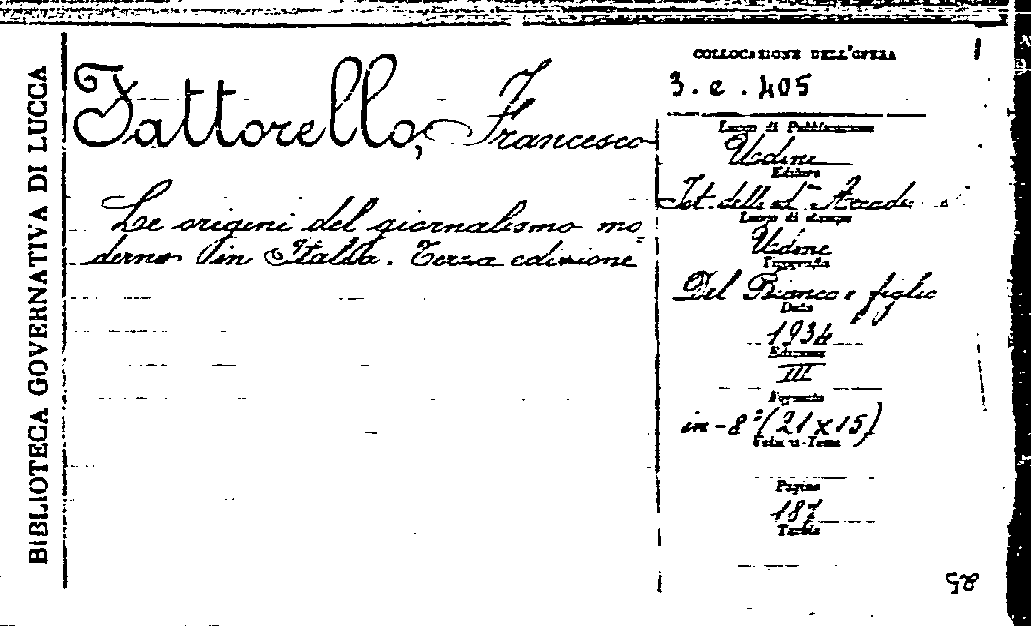 BIBLIOTECA GOVERNATIVA DI LUCCA
Fattorello, Francesco
Le origini del giornalismo mo=
derno in Italia. Terza edizione
COLLOCAZIONE DELL'OPERA
3. e. 405
Luogo di Pubblicazione
Udine
Editore
Ist. delle ed. Accade
Luogo di stampa
Udine
Tipografo
Del Bianco e figlio
Data
1934
Edizione
III
Formato
in-8° (21x15)
Vol. o Tomo
Pagine
187
Tavole